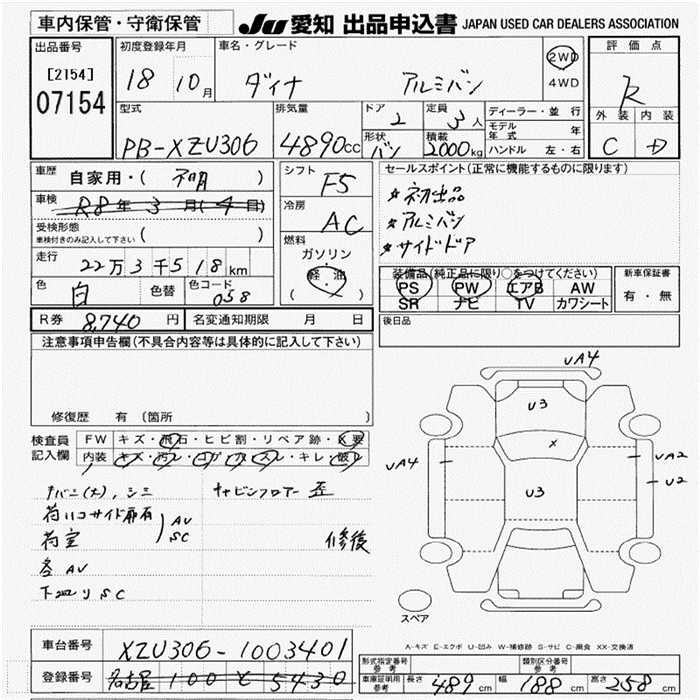 車内保管・守衛保管
JU 愛知 出品申込書 JAPAN USED CAR DEALERS ASSOCIATION
出品番号
[2154]
07154
初度登録年月
18 10月
車名・グレード
ダイナ アルミバン
2WD
4WD
評価点
R
外装 内装
C D
型式
PB-XZU306
排気量
4890cc
ドア
2
定員
3人
形状
バン
積載
2000kg
ディーラー・並行
モデル年式 年
ハンドル 左・右
車歴 自家用・( 不明 )
車検 R8年3月(4日)
受検形態
車検付きのみ記入して下さい ( )
走行 22万3千518km
色 白 色替 色コード 058
シフト
F5
冷房
AC
燃料
ガソリン
軽油
( ・ )
セールスポイント(正常に機能するものに限ります)
★初出品
★アルミバン
★サイドドア
装備品(純正品に限り○をつけてください)
PS PW エアB AW
SR ナビ TV カワシート
新車保証書
有・無
R券 8,740円 名変通知期限 月 日
後日品
注意事項申告欄(不具合内容等は具体的に記入して下さい)
修復歴 有(箇所
検査員
記入欄
FW キズ・飛石・ヒビ割・リペア跡・X要
内装 キズ・汚レ・コゲ・ヌレ・キレ・破レ
サバニ(大)、シミ キャビンフロアー歪
荷ハコサイド扉右
荷室
AV
SC
修復
各AV
下廻りSC
UA4
U3
UA4
X
UA2
U2
U3
スペア
A-キズ E-エクボ U-凹み W-補修跡 S-サビ C-腐食 XX-交換済
車台番号 XZU306-1003401
登録番号 名古屋 100 せ 5430
形式指定番号
参考
類別区分番号
参考
車庫証明用
参考
長さ 489cm 幅 188cm 高さ 258cm